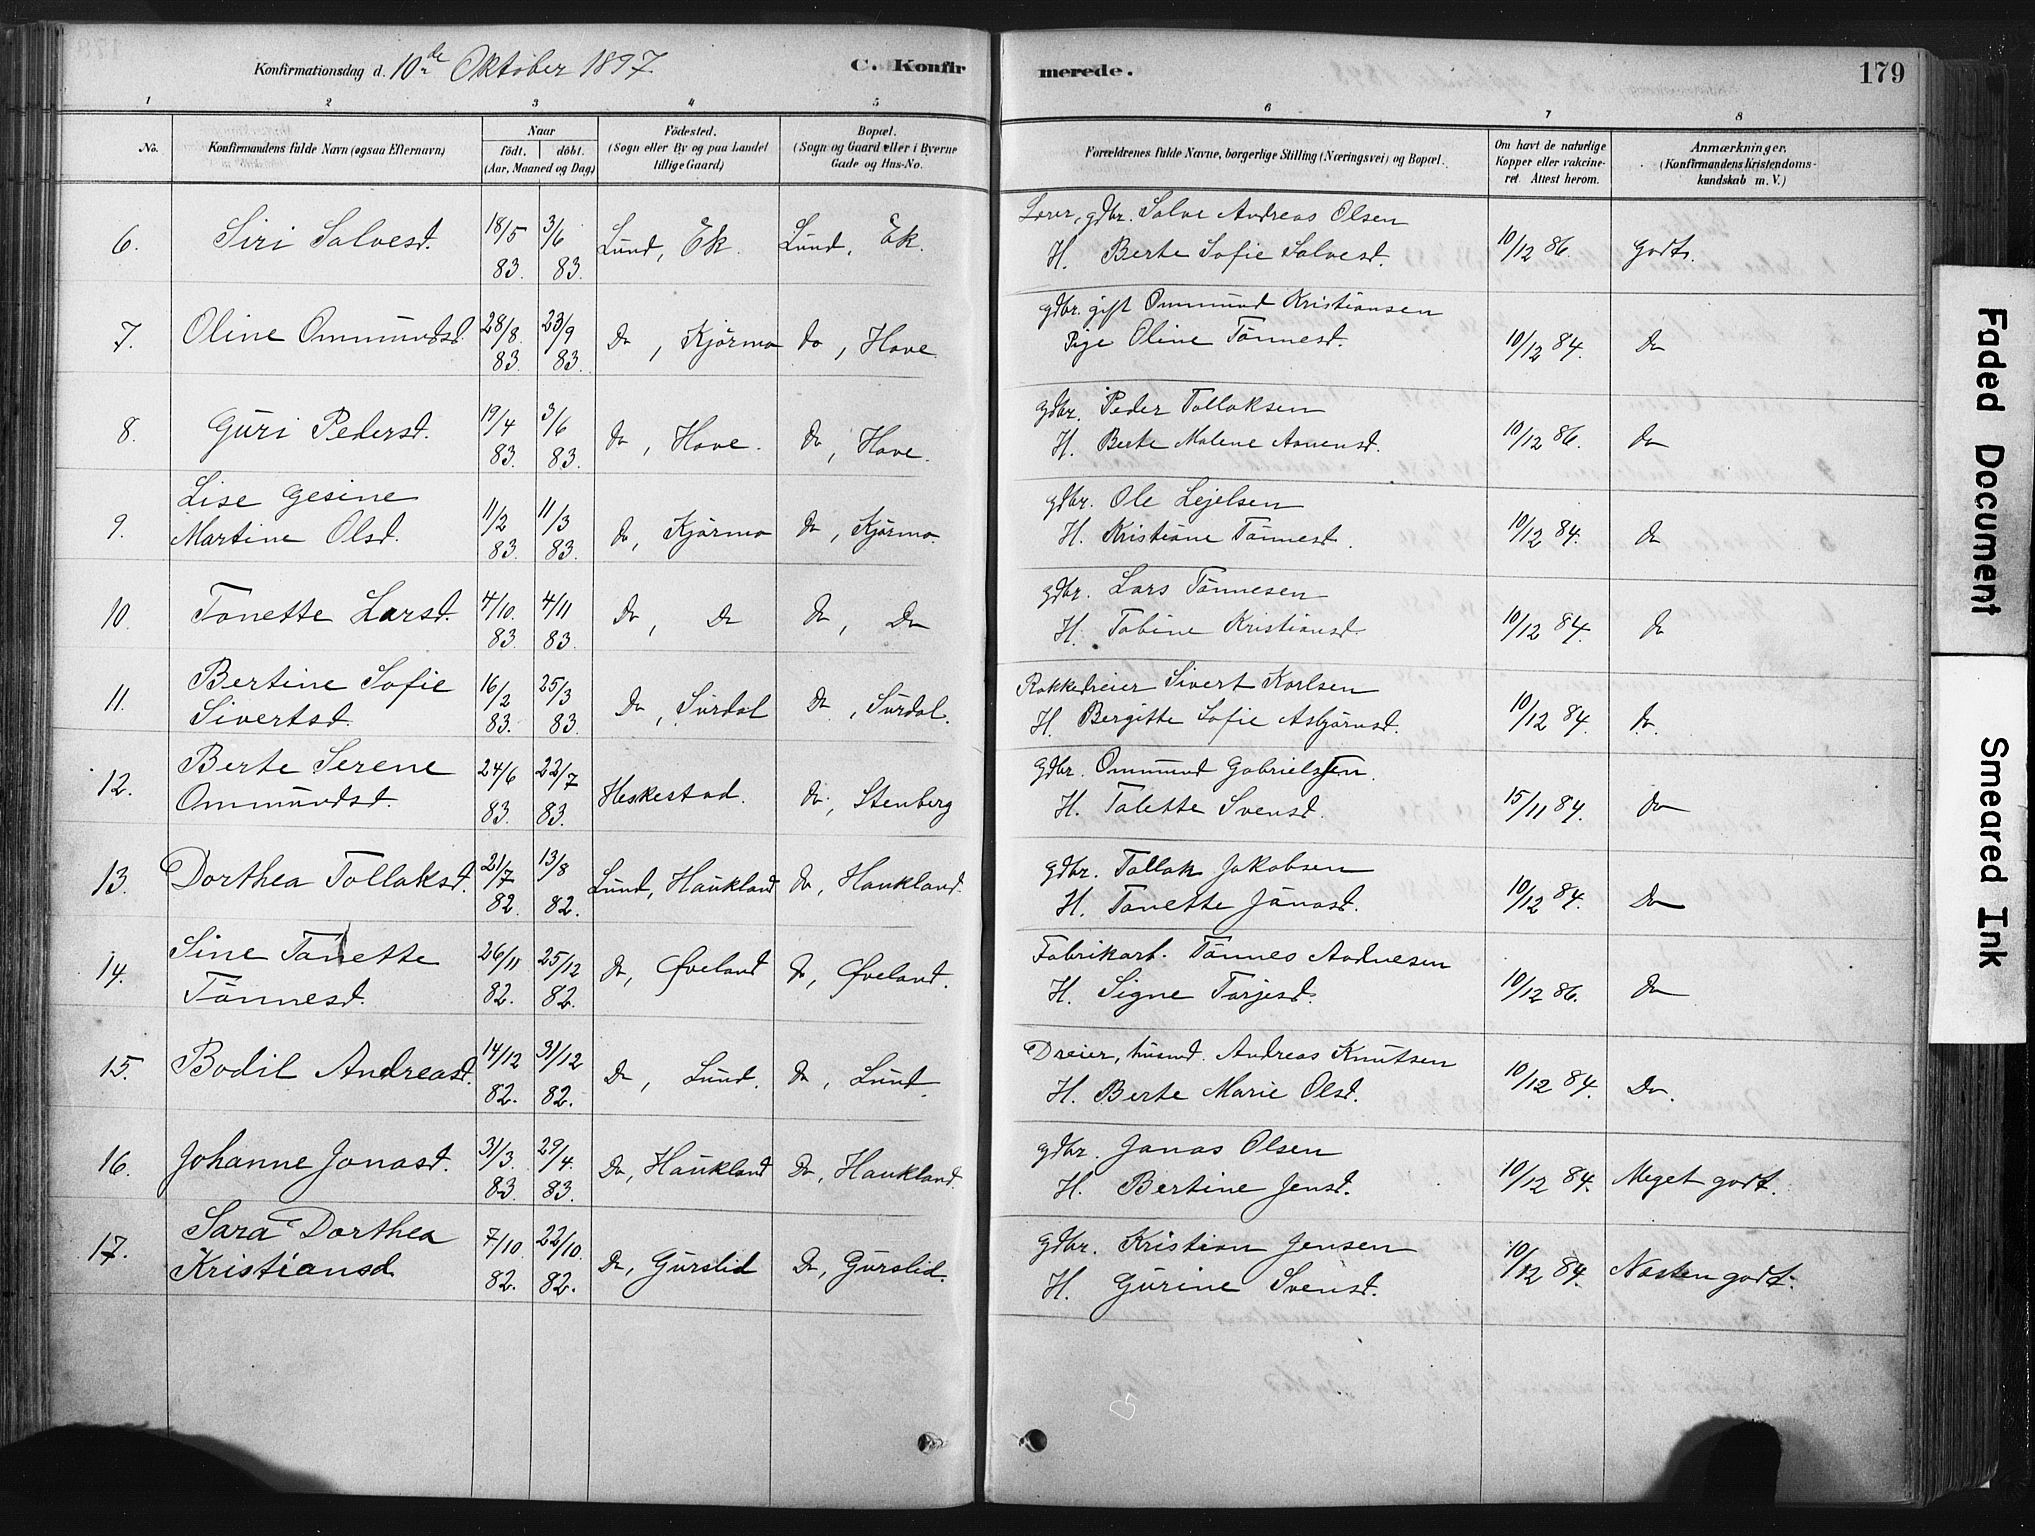 Konfirmationsdag d. 10de Oktober 1897.
C. Konfirmerede.
179
1 2 3 4 5 6 7 8
No.
Konfirmandens fulde Navn (ogsaa Efternavn)
Naar
født. døbt.
(Aar, Maaned og Dag)
Fødested.
(Sogn eller By og paa Landet
tillige Gaard)
Bopæl.
(Sogn og Gaard eller i Byerne
Gade og Hus-No.
Forældrenes fulde Navne, borgerlige Stilling (Næringsvei) og Bopæl.
Om havt de naturlige
Kopper eller vakcine-
ret. Attest herom.
Anmærkninger.
(Konfirmandens Kristendoms-
kundskab m. V.)
6. Siri Salvesd. 18/5 83. 3/6 83. Lund, Ek. Lund, Ek. Lærer, gdbr. Salve Andreas Olsen
H. Berte Sofie Salvesd. 10/12 86. Godt.
7. Oline Ommundsd. 28/8. 83. 23/9 83. Do, Kjörmo do, Hove. gdbr. gift Ommund Kristiansen
Pige Oline Tönnesd. 10/12 84. Do
8. Guri Pedersd. 19/4 83. 3/6 83. do, Hove. do, Hove. gdbr. Peder Tollaksen
H. Berte Malene Aanensd. 10/12 86. do
9. Lise Gesine
Martine Olsd. 11/2 83. 11/3 83. do, Kjörmo do, Kjörmo. gdbr. Ole Lejelsen
H. Kristiane Tönnesd. 10/12 84. do
10. Tonette Larsd. 4/10. 83. 4/11 83. Do, Do Do, Do gdbr. Lars Tönnesen
H. Tobine Kristiansd. 10/12 84. do
11. Bertine Sofie
Sivertsd. 16/2 83. 25/3 83. Do, Surdal Do, Surdal. Rokkedreier Sivert Karlsen
H. Bergitte Sofie Asbjörnsd. 10/12 84. do.
12. Berte Serene
Ommundsd. 24/6 83. 22/7 83. Heskestad. do, Stenberg gdbr. Ommund Gabrielsen.
H. Talette Svensd. 15/11 84. do
13. Dorthea Tollaksd. 21/7 82. 13/8 82. Lund, Haukland do, Haukland. gdbr. Tollak Jakobsen
H. Tonette Jonasd. 10/12 84. Do
14. Sine Tonette
Tönnesd. 26/11 82. 25/12 82. Do, Øveland do, Øveland. Fabrikarb. Tönnes Andnesen
H. Signe Tarjesd. 10/12 86. Do
15. Bodil Andreasd. 14/12 82. 31/12 82. Do, Lund. do, Lund. Dreier, husmd. Andreas Knutsen
H. Berte Marie Olsd. 10/12 84. Do.
16. Johanne Jonasd. 31/3. 83. 29/4. 83. Do, Haukland Do, Haukland. gdbr. Jonas Olsen
H. Bertine Jensd. 10/12 84. Meget godt.
17. Sara Dorthea
Kristiansd 7/10. 82. 22/10. 82. Do, Gurslid Do, Gurslid. gdbr. Kristian Jensen
H. Gurine Svensd. 10/12 84. Næsten godt.
Faded Document
Smeared Ink